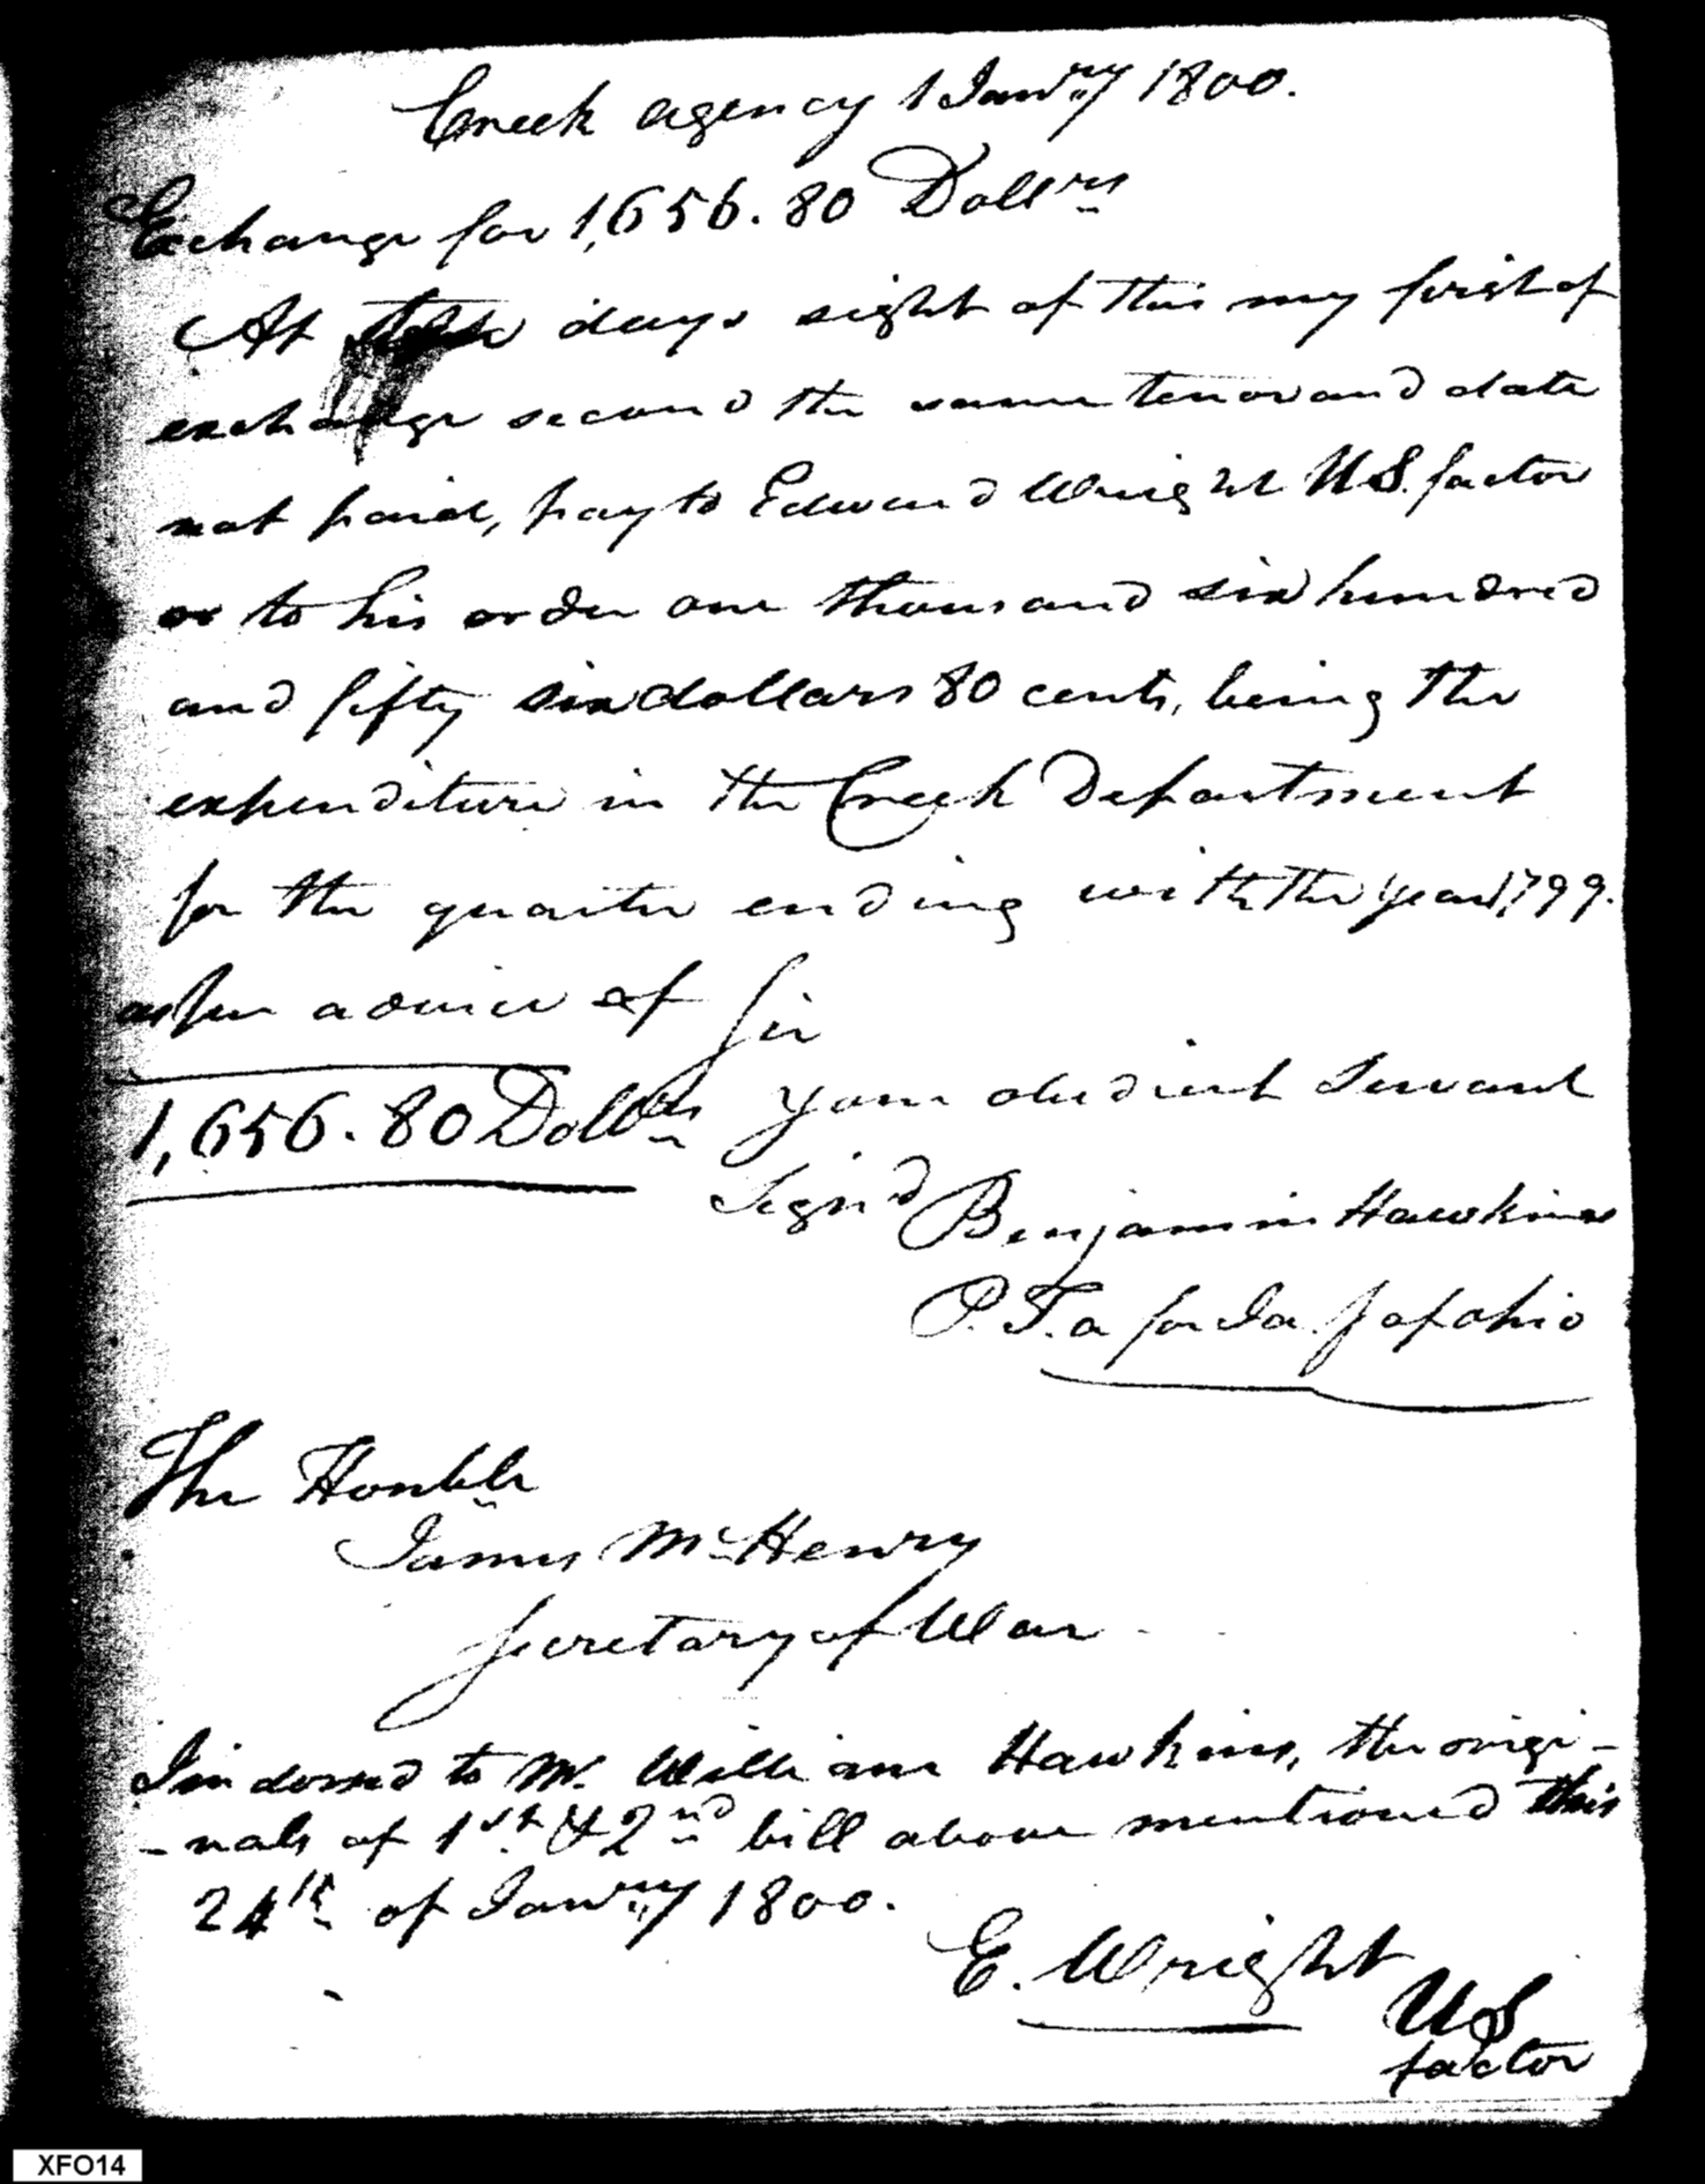 Creek agency 1 Janry 1800.
Exchange for 1,656.80 Dollrs
At days sight of this my first of
exchange second the same tenor and date
not paid, pay to Edward Wright U.S. factor
or to his order one thousand six hundred
and fifty six dollars 80 cents, being the
expenditure in the Creek Department
for the quarter ending with the year 1799.
as per advice of Sir
1,656.80 Dollrs your obedient servant
Signd Benjamin Hawkins
P. T. a for Ia. S of ohio
The Honble
James McHenry
Secretary of War
Indorsed to Mr. William Hawkins, the origi-
-nals of 1st & 2nd bill above mentioned this
24th of Janry 1800.
E. Wright
US
factor
XFO14